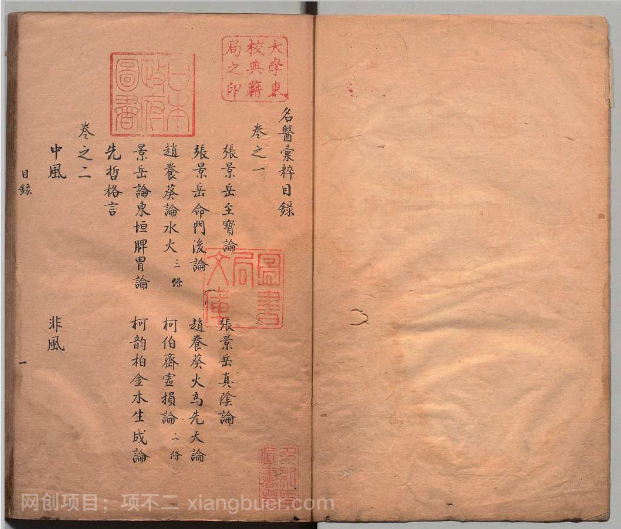 大學東
校典籍
局之印
日本
政府
圖書
名醫彙粹目錄
卷之一
張景岳至寶論　張景岳真陰論
張景岳命門後論　趙養葵火為先天論
趙養葵論水火三條　柯伯齋虛損論二條
景岳論東垣脾胃論　柯韵柏金水生成論
先哲格言
卷之二
中風　非風
目錄　一
圖書
局
文庫
网创项目；项不二 xiangbuer.com